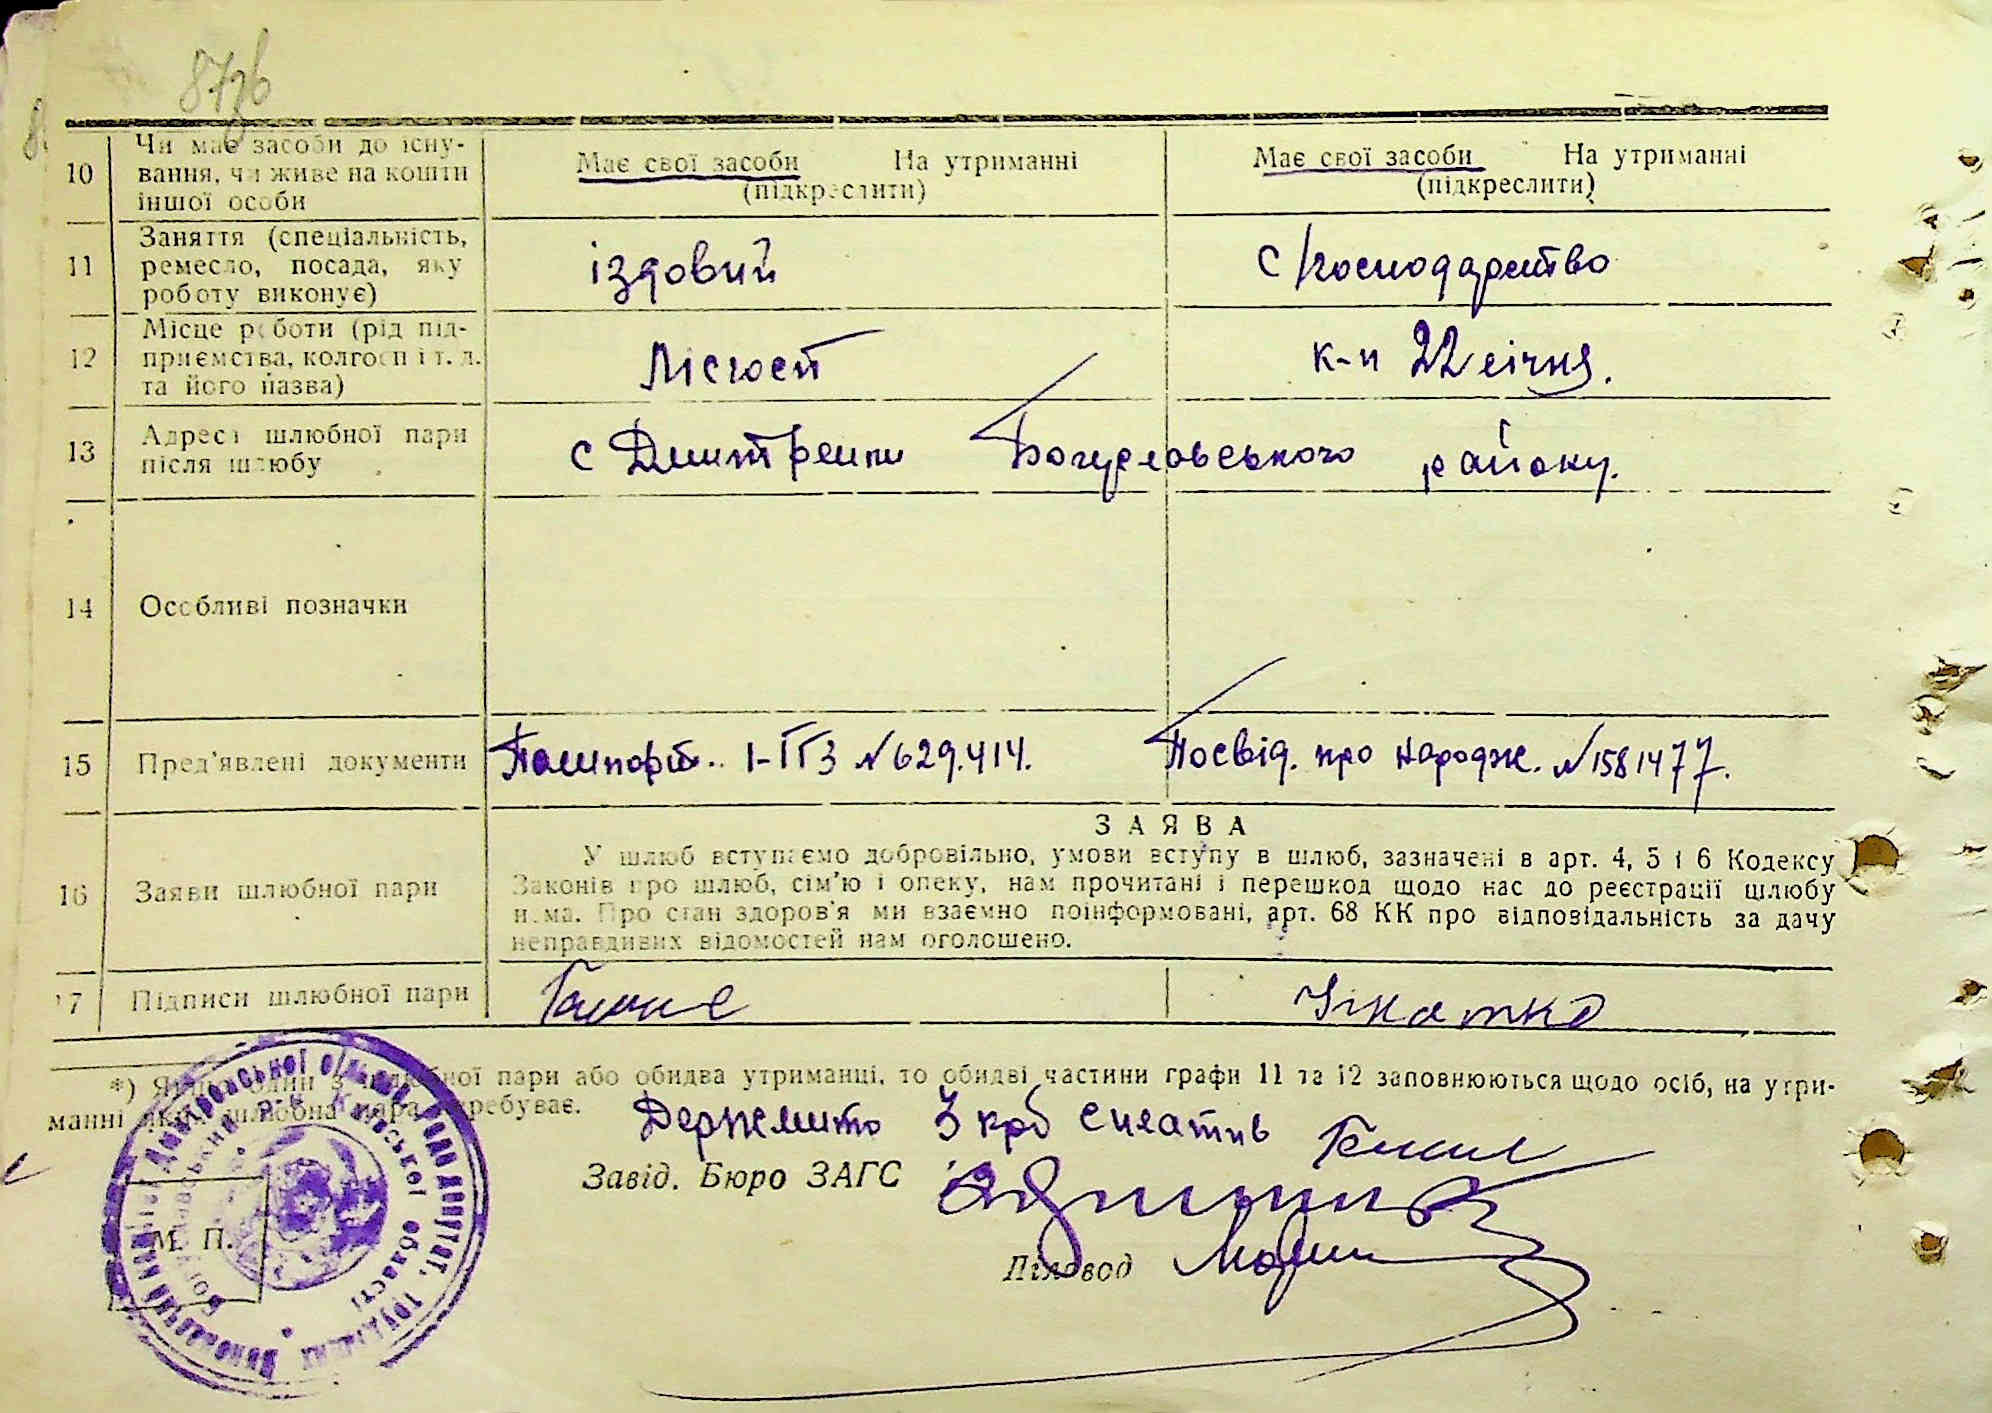 87зв
10 Чи має засоби до існу-
вання, чи живе на кошти
іншої особи
Має свої засоби На утриманні
(підкреслити)
Має свої засоби На утриманні
(підкреслити)
11 Заняття (спеціальність,
ремесло, посада, яку
роботу виконує)
іздовий
с/господарство
12 Місце роботи (рід під-
приємства, колгосп і т. д.
та його назва)
Лісгосп
к-п 22 січня.
13 Адреса шлюбної пари
після шлюбу
с Дмитренки Богуславського району.
14 Особливі позначки
15 Пред'явлені документи
Пашпорт. 1-ГГЗ №629.414.
Посвід. про народж. №1581477.
16 Заяви шлюбної пари
ЗАЯВА
У шлюб вступаємо добровільно, умови вступу в шлюб, зазначені в арт. 4, 5 і 6 Кодексу
Законів про шлюб, сім'ю і опеку, нам прочитані і перешкод щодо нас до реєстрації шлюбу
нема. Про стан здоров'я ми взаємно поінформовані, арт. 68 КК про відповідальність за дачу
неправдивих відомостей нам оголошено.
17 Підписи шлюбної пари
*) Якщо один з шлюбної пари або обидва утриманці, то обидві частини графи 11 та 12 заповнюються щодо осіб, на утри-
манні яких шлюбна пара перебуває.
Держмито 3 крб сплатив
Завід. Бюро ЗАГС
Діловод
М. П.
Виконавчий комітет Дмитренської сільської ради депутат. трудящих
Богуславський р-н Київської області